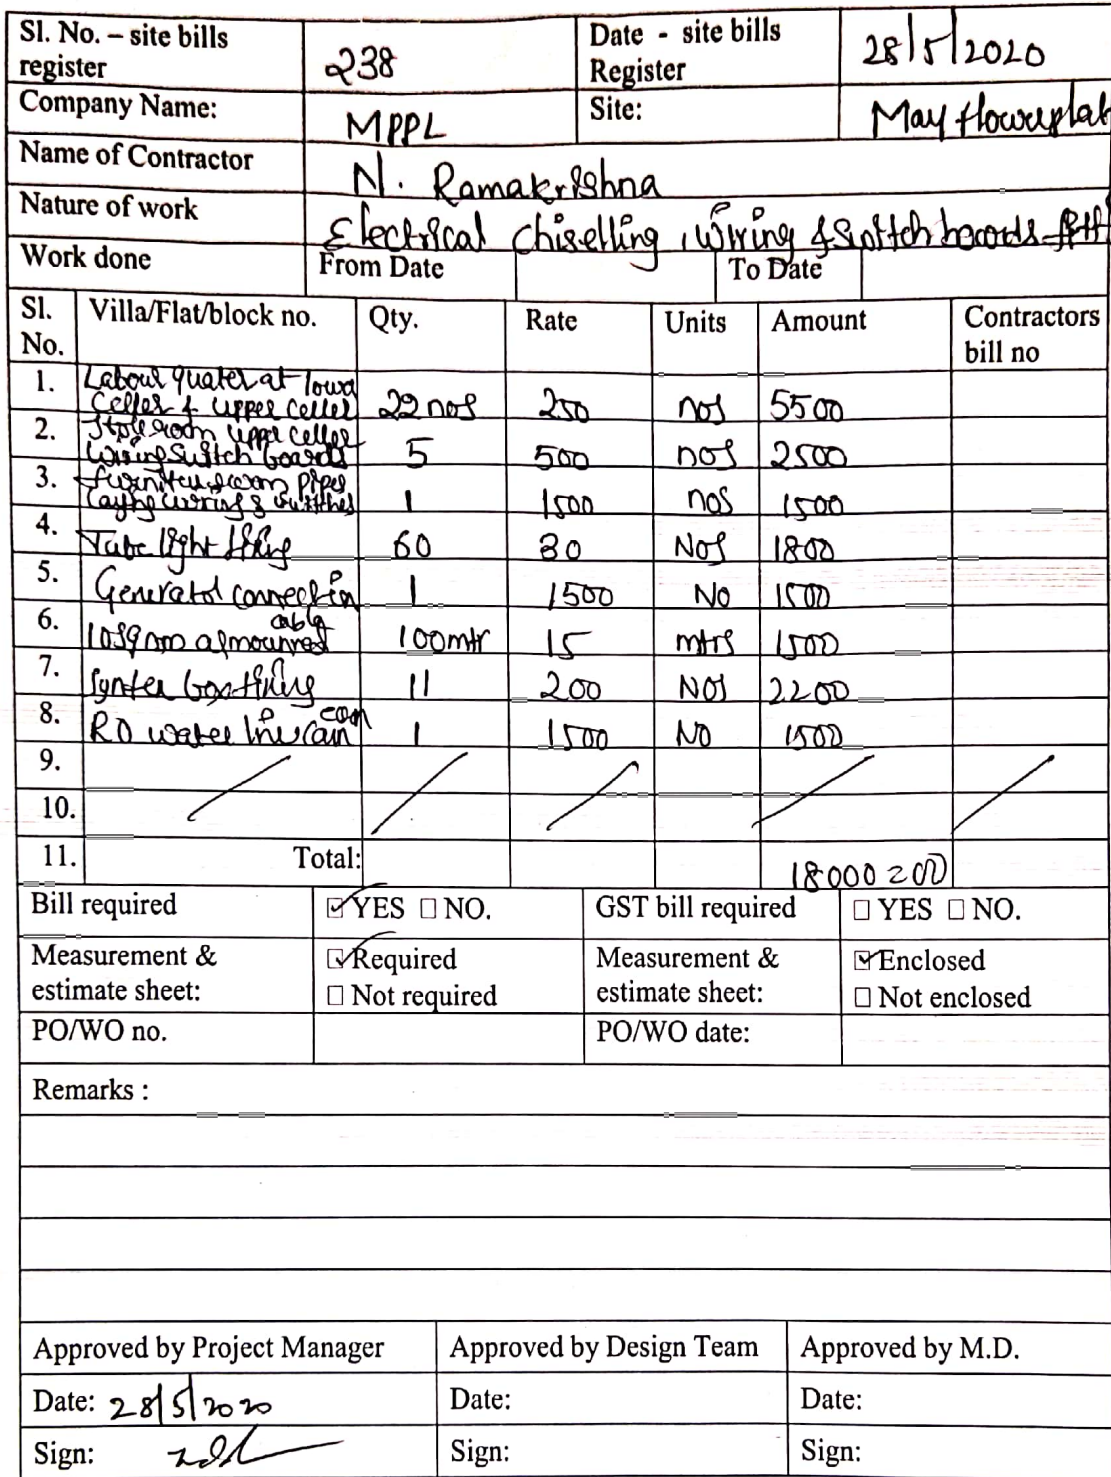 Sl. No. – site bills register 238 Date - site bills Register 28/5/2020
Company Name: MPPL Site: May flowerplat
Name of Contractor N. Ramakrishna
Nature of work Electrical chiselling, wiring & switch boards
Work done From Date To Date
Sl. No. Villa/Flat/block no. Qty. Rate Units Amount Contractors bill no
1. Labour quater at lowa
Celler & upper celler 22 nos 250 nos 5500
2. Store room upper celler
wiring switch boards 5 500 nos 2500
3. furniture room pipes
laying wiring & switches 1 1500 nos 1500
4. Tube light fixing 60 30 Nos 1800
5. Generator connection 1 1500 No 1500
6. 10sqmm armoured cable 100mtr 15 mtrs 1500
7. box fixing 11 200 Nos 2200
8. RO water line con 1 1500 No 1500
9.
10.
11. Total: 18000=00
Bill required ☑YES ☐NO. GST bill required ☐ YES ☐ NO.
Measurement & estimate sheet: ☑Required Measurement & estimate sheet: ☑Enclosed
☐ Not required ☐ Not enclosed
PO/WO no. PO/WO date:
Remarks :
Approved by Project Manager Approved by Design Team Approved by M.D.
Date: 28/5/2020 Date: Date:
Sign: Sign: Sign: